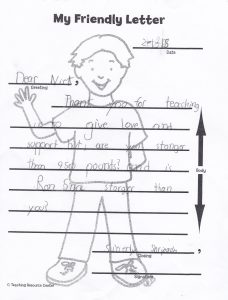 My Friendly Letter
Date
Dear Nick,
Greeting
Thank you for teaching
us to give love and
support but, are you stonger
than 950 pounds? and is
Ron stonger than
you?
Body
Closing
Signature
© Teaching Resource Center